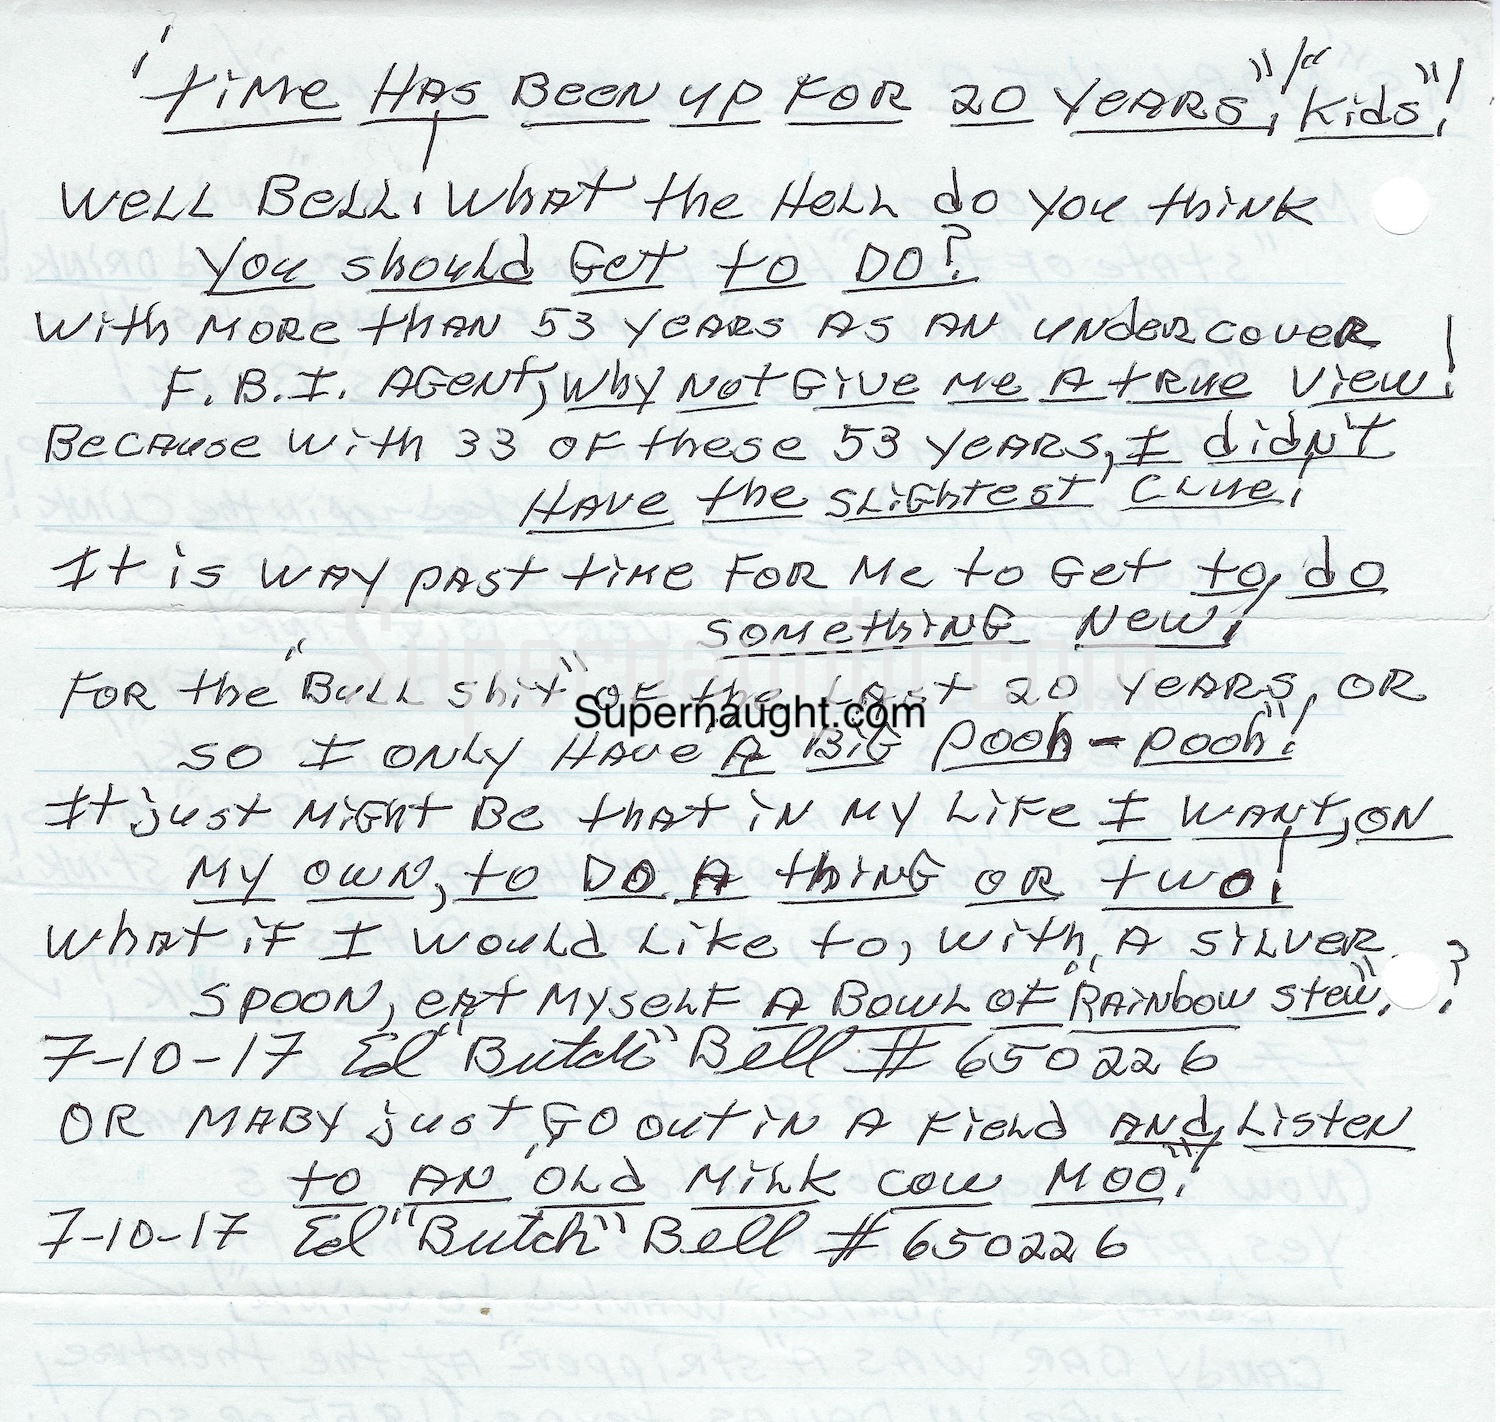 "Time Has Been up For 20 Years", "Kids"!
Well Bell, What the Hell do You think
You should Get to DO?
With More than 53 Years As An undercover
F.B.I. Agent, Why Not Give Me A true View!
Because with 33 of these 53 years, I didn't
Have the slightest Clue!
It is Way past time For Me to Get to, do
something New!
For the "Bull shit" of the Last 20 Years, OR
Supernaught.com
so I only Have A Big pooh-pooh"!
It just Might Be that in My Life I want, on
My own, to Do A thing or two!
What if I would Like to, with, A silver
spoon, eat Myself A Bowl of "Rainbow stew"?
7-10-17 Ed "Butch" Bell # 650226
OR MABY just Go out in A Field And, Listen
to An Old Milk Cow MOO"!
7-10-17 Ed "Butch" Bell # 650226